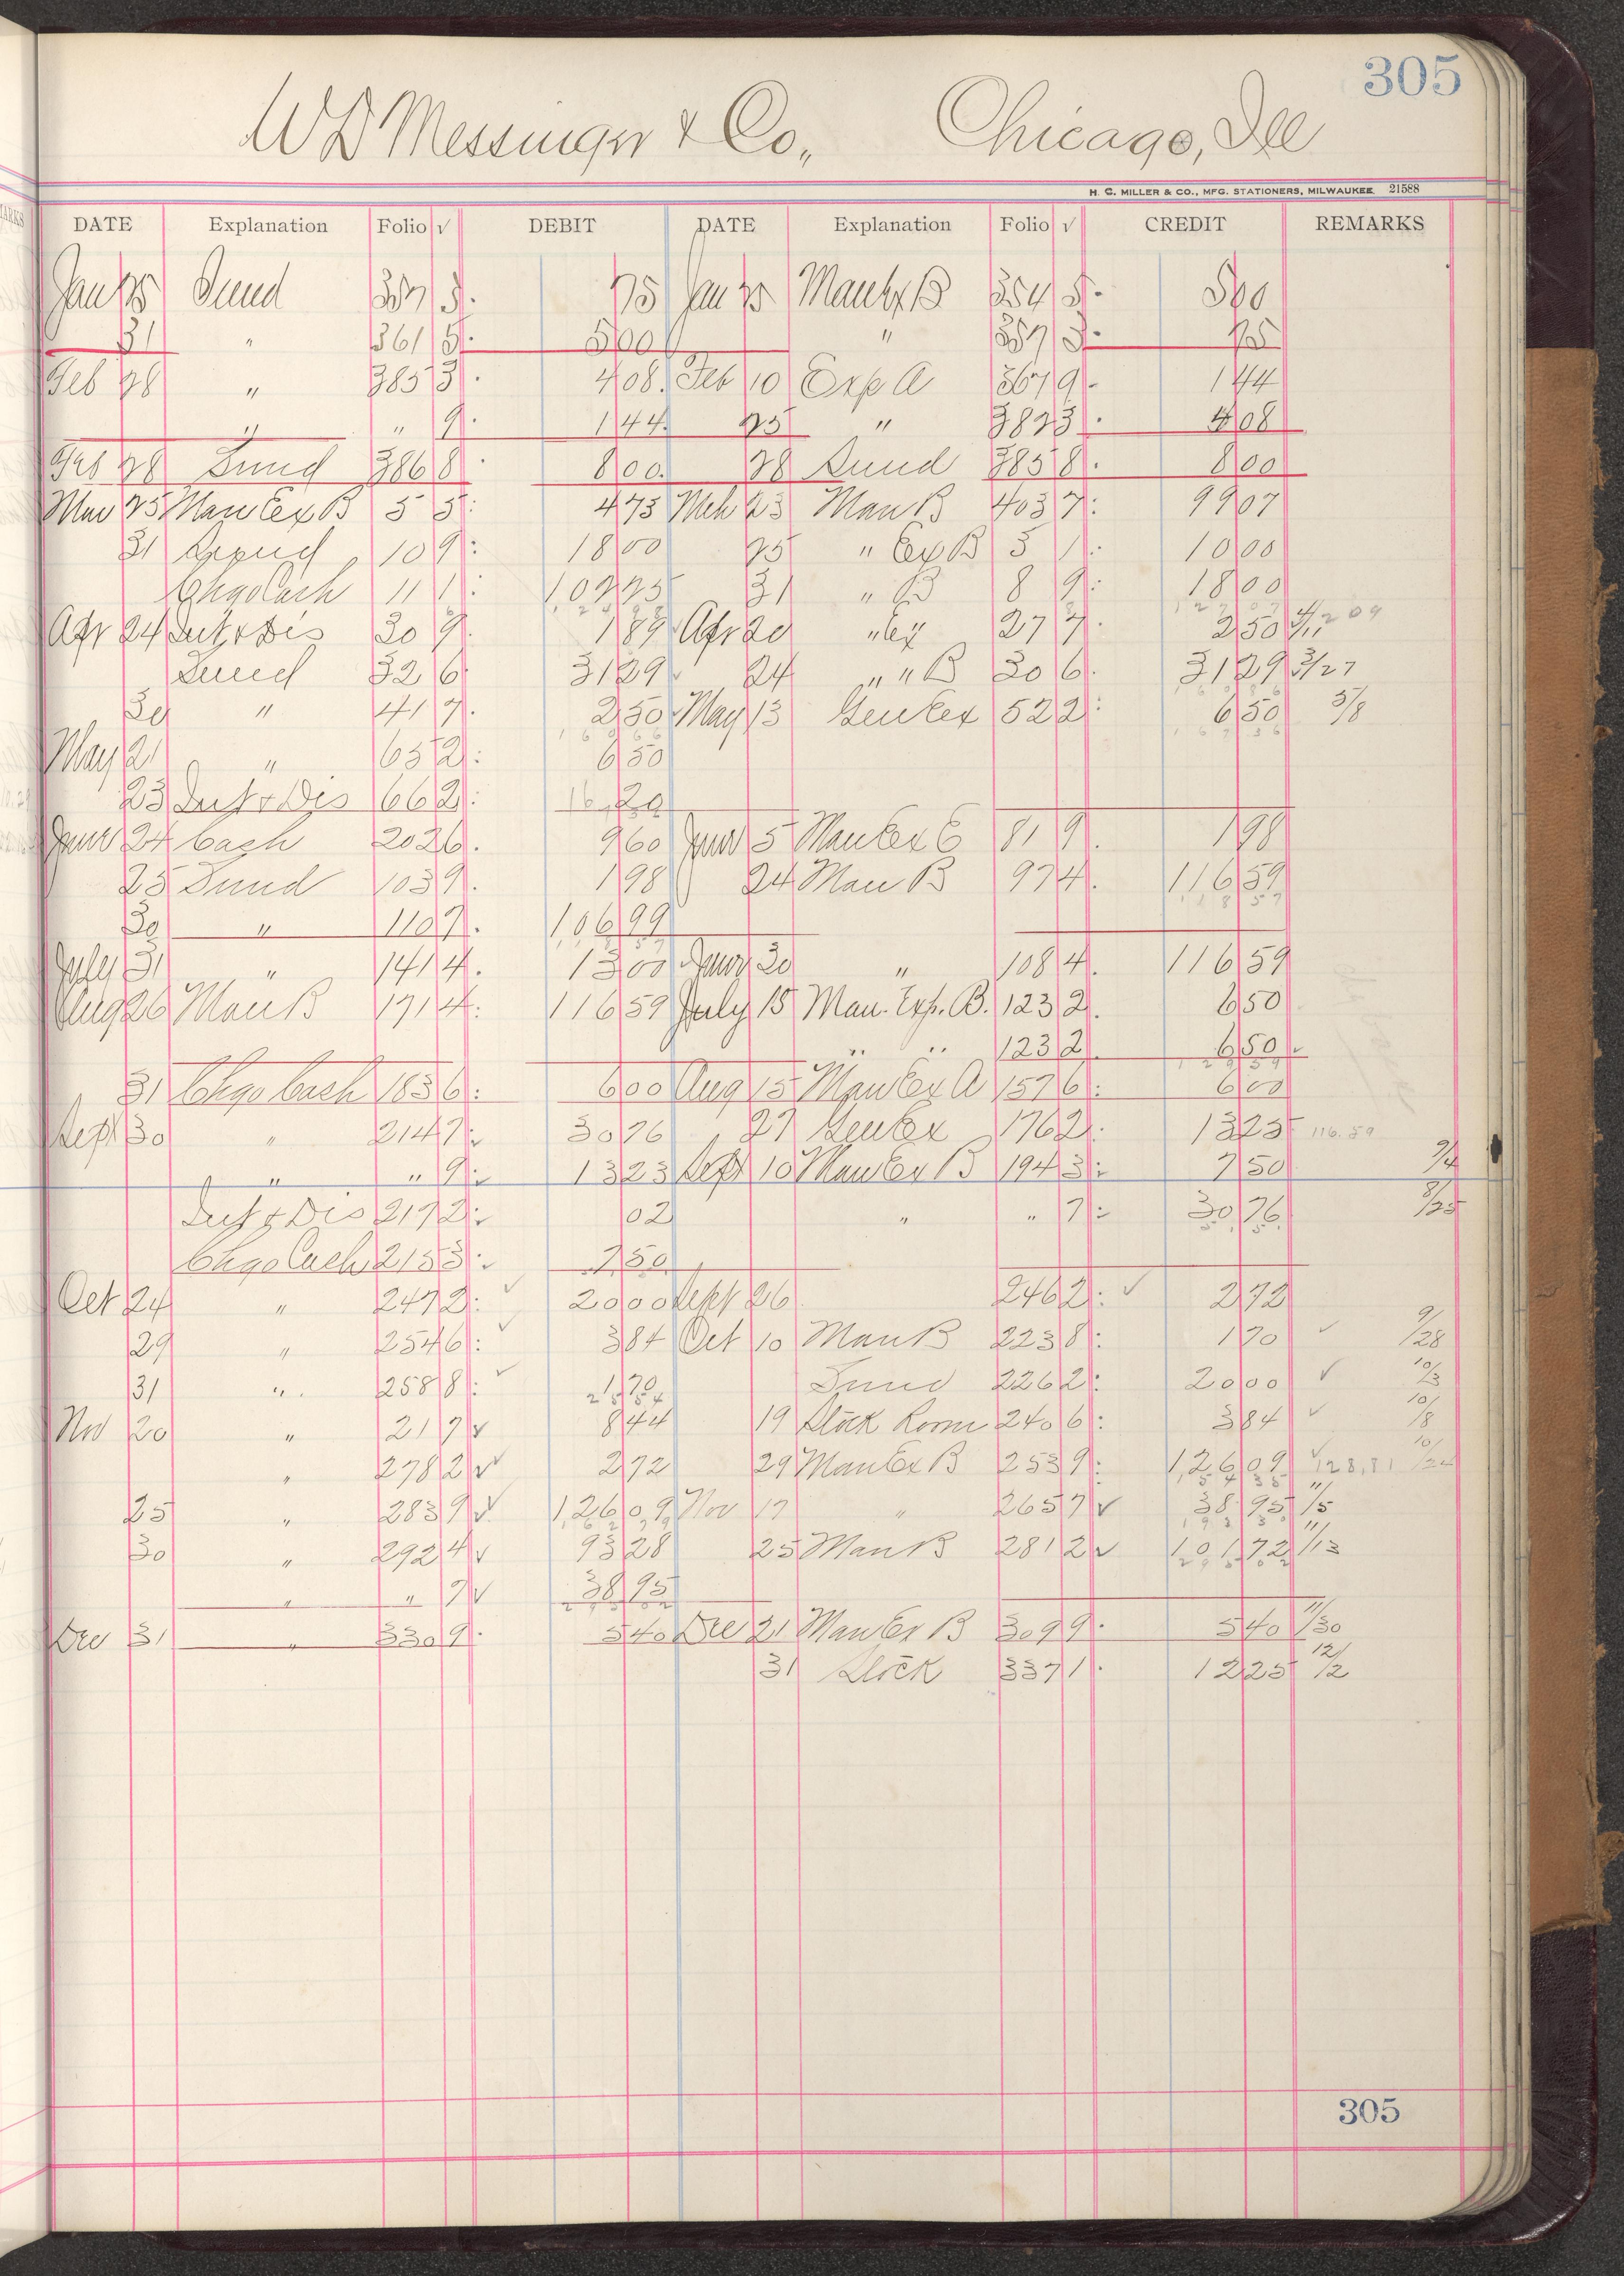 305
W D Messinger & Co., Chicago, Ill
H. C. MILLER & CO., MFG. STATIONERS, MILWAUKEE 21588
DATE Explanation Folio √ DEBIT DATE Explanation Folio √ CREDIT REMARKS
Jan 25 Sund 357 3. 75 Jan 25 Man Ex B 354 5. 500
31 " 361 5. 500 " 357 3. 75
Feb 28 " 385 3. 408 Feb 10 Exp A 367 9. 144
" " 9. 144 25 " 382 3. 408
Feb 28 Sund 386 8. 800 28 Sund 385 8. 800
Mar 25 Man Ex B 5 5: 475 Mch 23 Man B 403 7: 9907
31 Sund 10 9: 1800 25 " Ex B 5 1: 1000
Chgo Cash 11 1: 10225 31 " B 8 9: 1800
Apr 24 Int & Dis 30 9. 189 Apr 20 " Ex 27 7. 250
Sund 32 6. 3129 24 " " B 30 6. 3129 3/27
30 " 41 7. 250 May 13 Gen Ex 52 2: 650 5/8
May 21 " 65 2: 650
23 Int & Dis 66 2: 1620
June 24 Cash 202 6. 960 June 5 Man Ex C 81 9. 198
25 Sund 103 9. 198 24 Man B 97 4. 11659
30 " 110 7. 10699
July 31 " 141 4. 1300 June 30 " 108 4. 11659
Aug 26 Man B 171 4: 11659 July 15 Man. Exp. B. 123 2. 650
" " 123 2. 650
31 Chgo Cash 183 6: 600 Aug 15 Man Ex A 157 6: 600
Sept 30 " 214 7: 3076 27 Gen Ex 176 2: 1325 116.59
" " 9: 1323 Sept 10 Man Ex B 194 3: 750 9/4
Int & Dis 217 2: 02 " " 7: 3076 8/25
Chgo Cash 215 3: 750
Oct 24 " 247 2: ✓ 2000 Sept 26 246 2: ✓ 272
29 " 254 6: ✓ 384 Oct 10 Man B 223 8: 170 ✓ 9/28
31 " 258 8: ✓ 170 Sund 226 2: 2000 ✓ 10/3
Nov 20 " 21 7 ✓ 844 19 Stock Room 240 6: 384 ✓ 10/8
" 278 2 ✓ 272 29 Man Ex B 253 9: 12609 ✓ 128,81
25 " 283 9 ✓ 12609 Nov 17 " 265 7 ✓ 3895 11/5
30 " 292 4 ✓ 9328 25 Man B 281 2 ✓ 10172 11/13
" " 7 ✓ 3895
Dec 31 " 330 9. 540 Dec 21 Man Ex B 309 9. 540 11/30
31 Stock 337 1. 1225 12/2
305